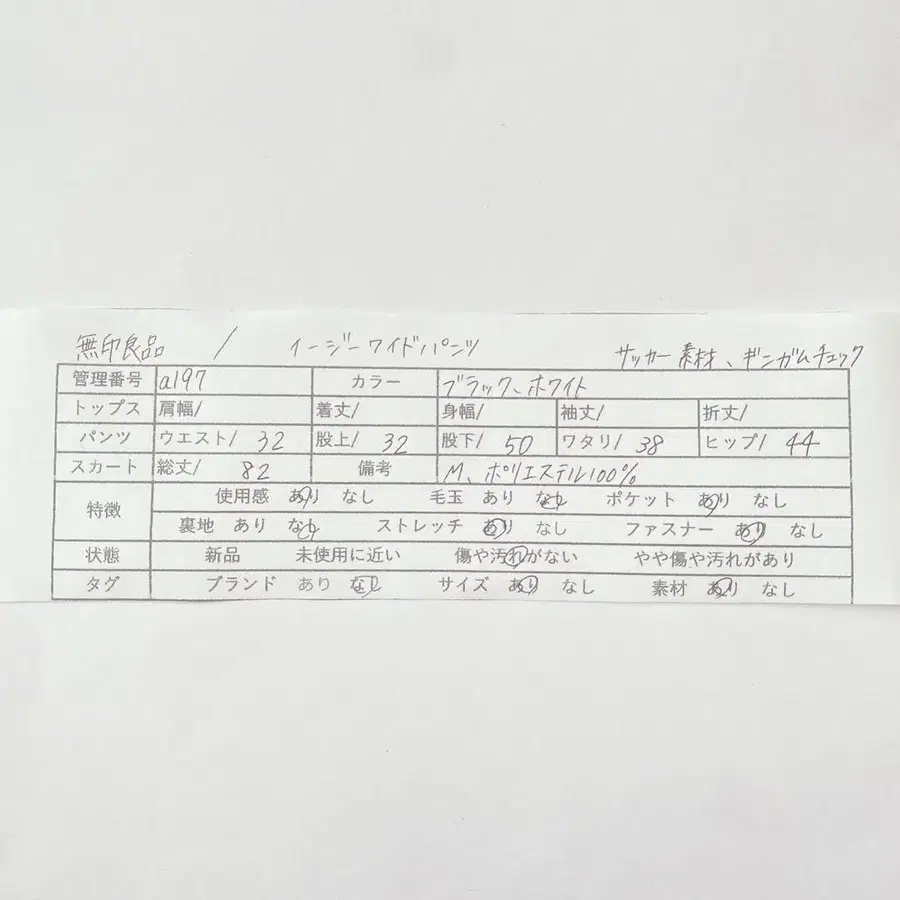 無印良品 / イージーワイドパンツ サッカー素材、ギンガムチェック
管理番号 a197 カラー ブラック、ホワイト
トップス 肩幅/ 着丈/ 身幅/ 袖丈/ 裄丈/
パンツ ウエスト/ 32 股上/ 32 股下/ 50 ワタリ/ 38 ヒップ/ 44
スカート 総丈/ 82 備考 M、ポリエステル100%
特徴 使用感 あり なし 毛玉 あり なし ポケット あり なし
裏地 あり なし ストレッチ あり なし ファスナー あり なし
状態 新品 未使用に近い 傷や汚れがない やや傷や汚れがあり
タグ ブランド あり なし サイズ あり なし 素材 あり なし